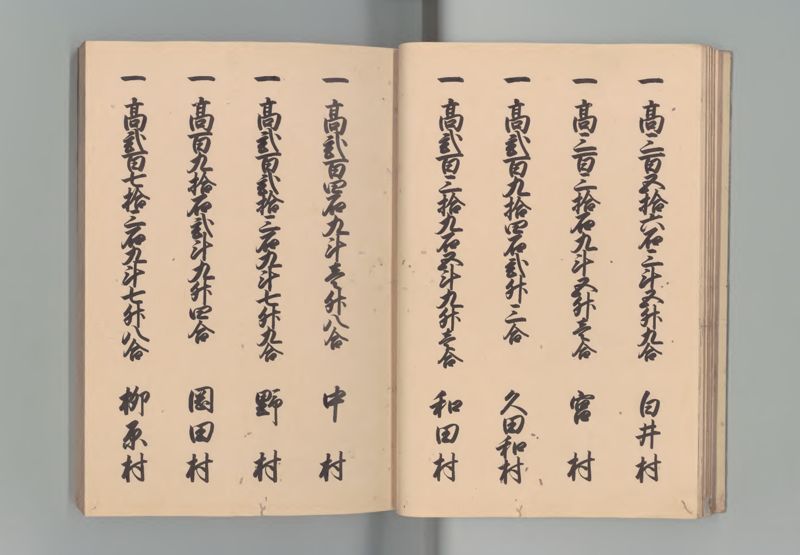 一 高三百五拾六石三斗五升九合 白井村
一 高三百三拾石九斗五升壱合 宮村
一 高弐百九拾四石弐升三合 久田和村
一 高弐百三拾九石五斗九升壱合 和田村
一 高弐百四石九斗壱升八合 中村
一 高弐百弐拾三石九斗七升九合 野村
一 高百九拾石弐斗九升四合 岡田村
一 高弐百七拾三石九斗七升八合 柳原村